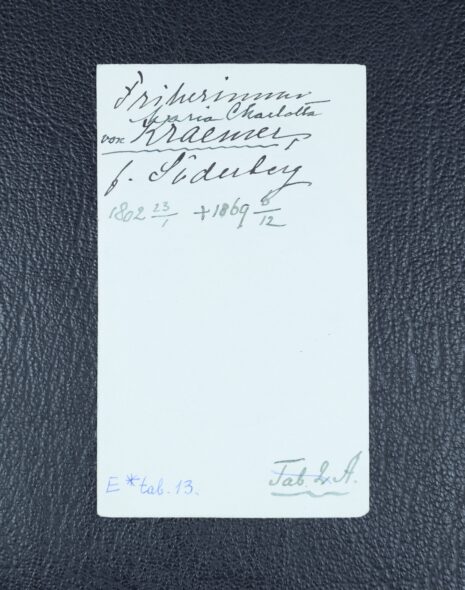 Friherinnan
Maria Charlotta
von Kraemer,
f. Söderberg
1802 23/1 +1869 6/12
E *tab. 13.
Tab. 2. A.